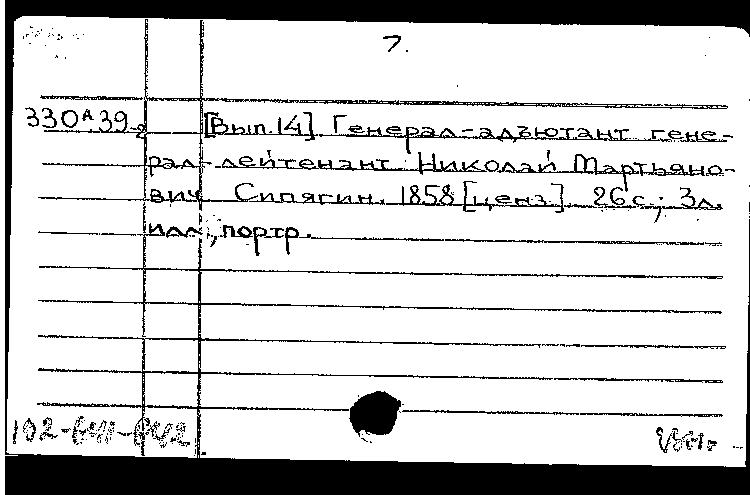 7.
330А.39
2
[Вып.14]. Генерал-адъютант гене-
рал-лейтенант Николай Мартьяно-
вич Сипягин. 1858 [ценз.]. 26 с.; 3 л.
илл., портр.